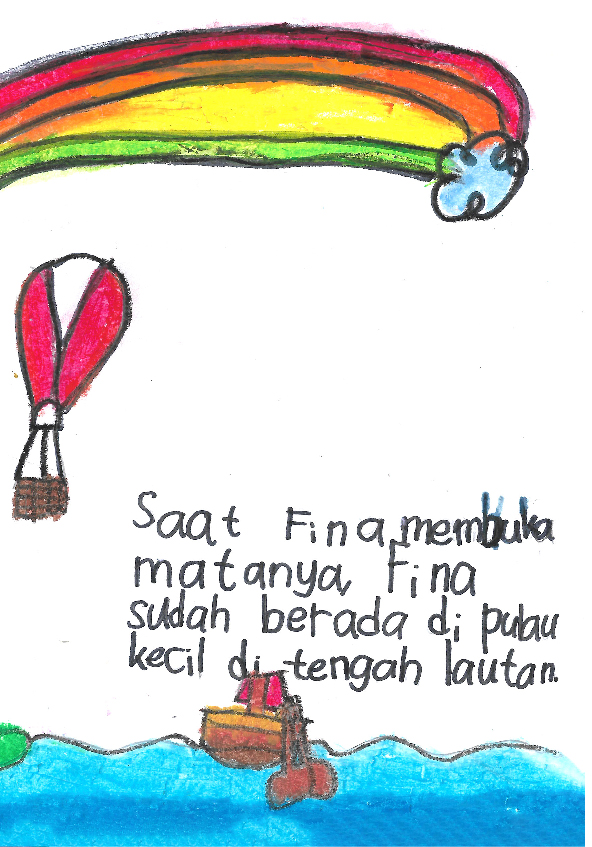 Saat Fina membuka
matanya, Fina
sudah berada di pulau
kecil di tengah lautan.